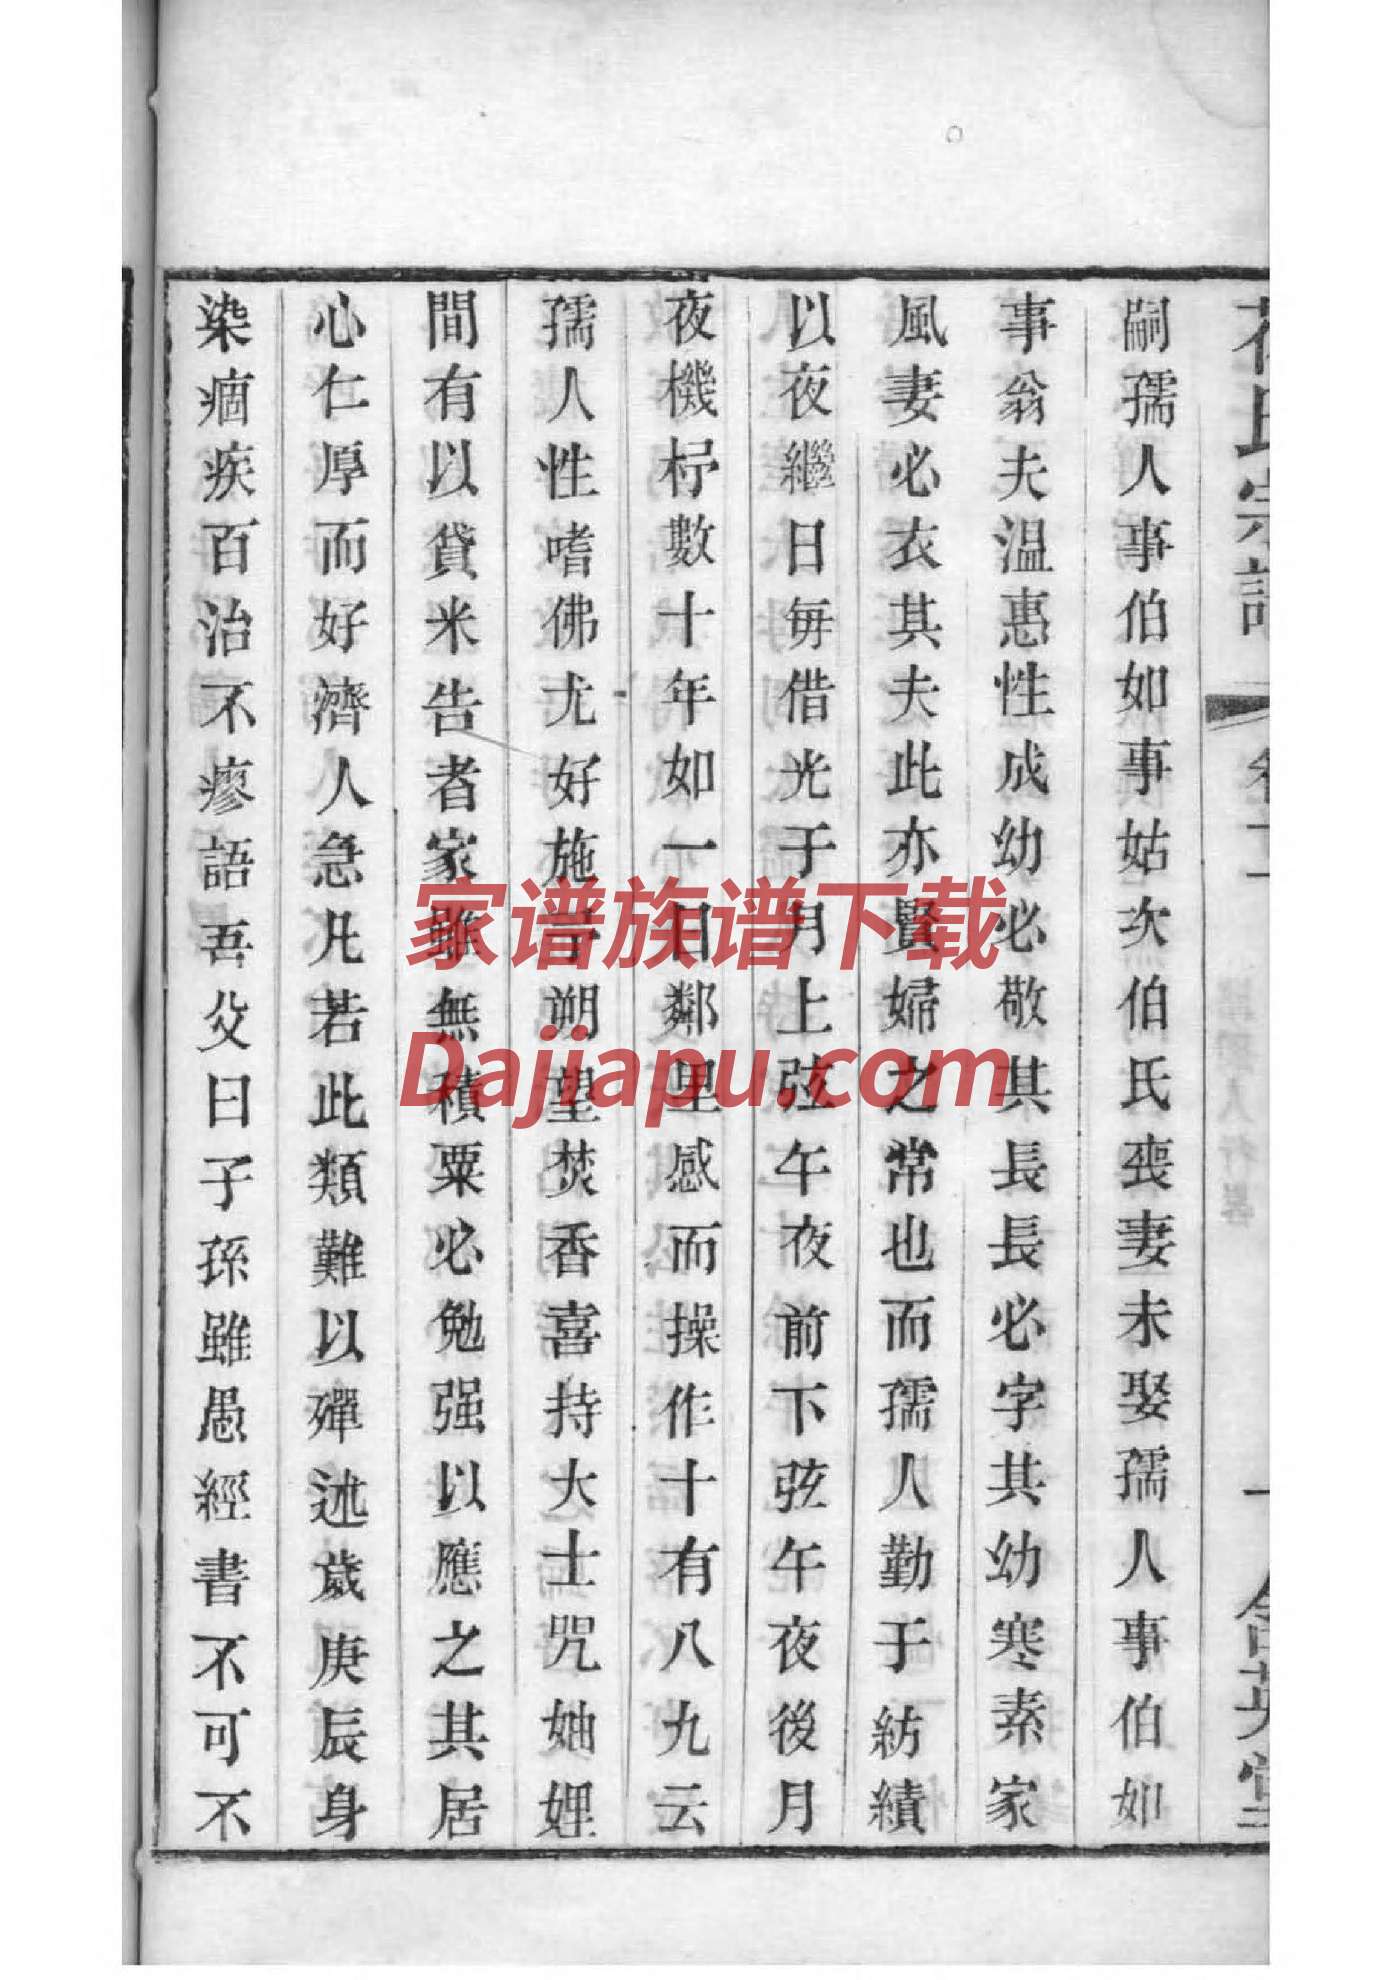 嗣孺人事伯如事姑次伯氏喪妻未娶孺人事伯如
事翁夫温惠性成幼必敬其長長必字其幼寒素家
風妻必衣其夫此亦賢婦之常也而孺人勤于紡績
以夜繼日每借光于月上弦午夜前下弦午夜後月
夜機杼數十年如一日鄰里感而操作十有八九云
孺人性嗜佛尤好施予朔望焚香喜持大士咒妯娌
間有以貸米告者家雖無積粟必勉强以應之其居
心仁厚而好濟人急凡若此類難以殫述歲庚辰身
染痼疾百治不瘳語吾父曰子孫雖愚經書不可不
家谱族谱下载
Dajiapu.com